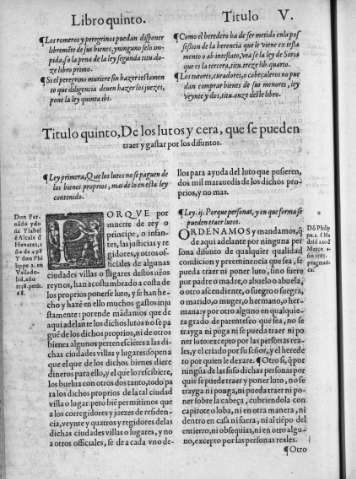 Libro quinto. Titulo V.
¶Los romeros y peregrinos puedan disponer
libremẽte de sus bienes, y ninguno se lo im-
pida, so la pena de la ley segunda titu. do-
ze libro primo.
¶Si el peregrino muriere sin hazer testamen-
to que diligencia deuen hazer los juezes,
pone la ley quinta ibi.
¶Como el heredero ha de ser metido en la pos
session de la herencia que le viene ex testa
mento o ab intestato, vea se la ley de Soria
que es la tercera, titu. treze lib. quarto.
¶Los tutores, curadores, o cabeçaleros no pue
dan comprar bienes de sus menores, ley
veynte y dos, titu. onze deste libro.
Titulo quinto, De los lutos y cera, que se pueden
traer y gastar por los difuntos.
¶Ley primera, Que los lutos no se paguen de
los bienes proprios, mas de lo en esta ley
contenido.
PORQVE por
muerte de rey o
principe, o infan-
tes, las justicias y re
gidores, y otros of-
ficiales de algunas
ciudades villas o lugares destos nr̃os
reynos, han acostumbrado a costa de
los proprios ponerse luto, y se han he-
cho y hazẽ en ello muchos gastos inju
stamente: porende mãdamos que de
aqui adelante los dichos lutos no se pa
guẽ de los dichos proprios, ni de otros
bienes algunos pertenescientes a las di-
chas ciudades villas y lugares so pena
que el que de los dichos bienes diere
dineros para ello, y el que lo rescibiere,
los buelua con otros dos tanto, todo pa
ra los dichos proprios de la tal ciudad
villa o lugar. pero biẽ permitimos que
a los corregidores y juezes de residen-
cia, veynte y quatros y regidores de las
dichas ciudades villas o lugares, y no
a otros officiales, se de a cada vno de-
llos para ayuda del luto que pusieren,
dos mil marauedis de los dichos pro-
prios, y no mas.
¶Ley. ij. Porque personas, y en que forma se
pueden traer lutos.
ORDENAMOS y mandamos, q̃
de aqui adelante por ninguna per
sona difunto de qualquier qualidad
condicion y preeminencia que sea, se
pueda traer ni poner luto, sino fuere
por padre o madre, o abuelo o abuela,
o otro ascendiente, o suegro o suegra,
o marido, o muger, o hermano, o her-
mana: y por otro alguno en qualquie-
ra grado de parentesco que sea, no se
trayga ni ponga ni se pueda traer ni po
ner luto: excepto por las personas rea-
les, y el criado por su señor, y el herede
ro por quien le dexare. ¶Otro si, q̃ por
ningũa de las suso dichas personas por
quiẽ se puede traer y poner luto, no se
trayga ni ponga, ni pueda traer ni po-
ner sobre la cabeça, cubriendola con
capirote o loba, ni en otra manera, ni
dentro en casa ni fuera, ni al tiẽpo del
entierro, ni obsequias, ni en otro algu-
no, excepto por las personas reales.
¶Otro